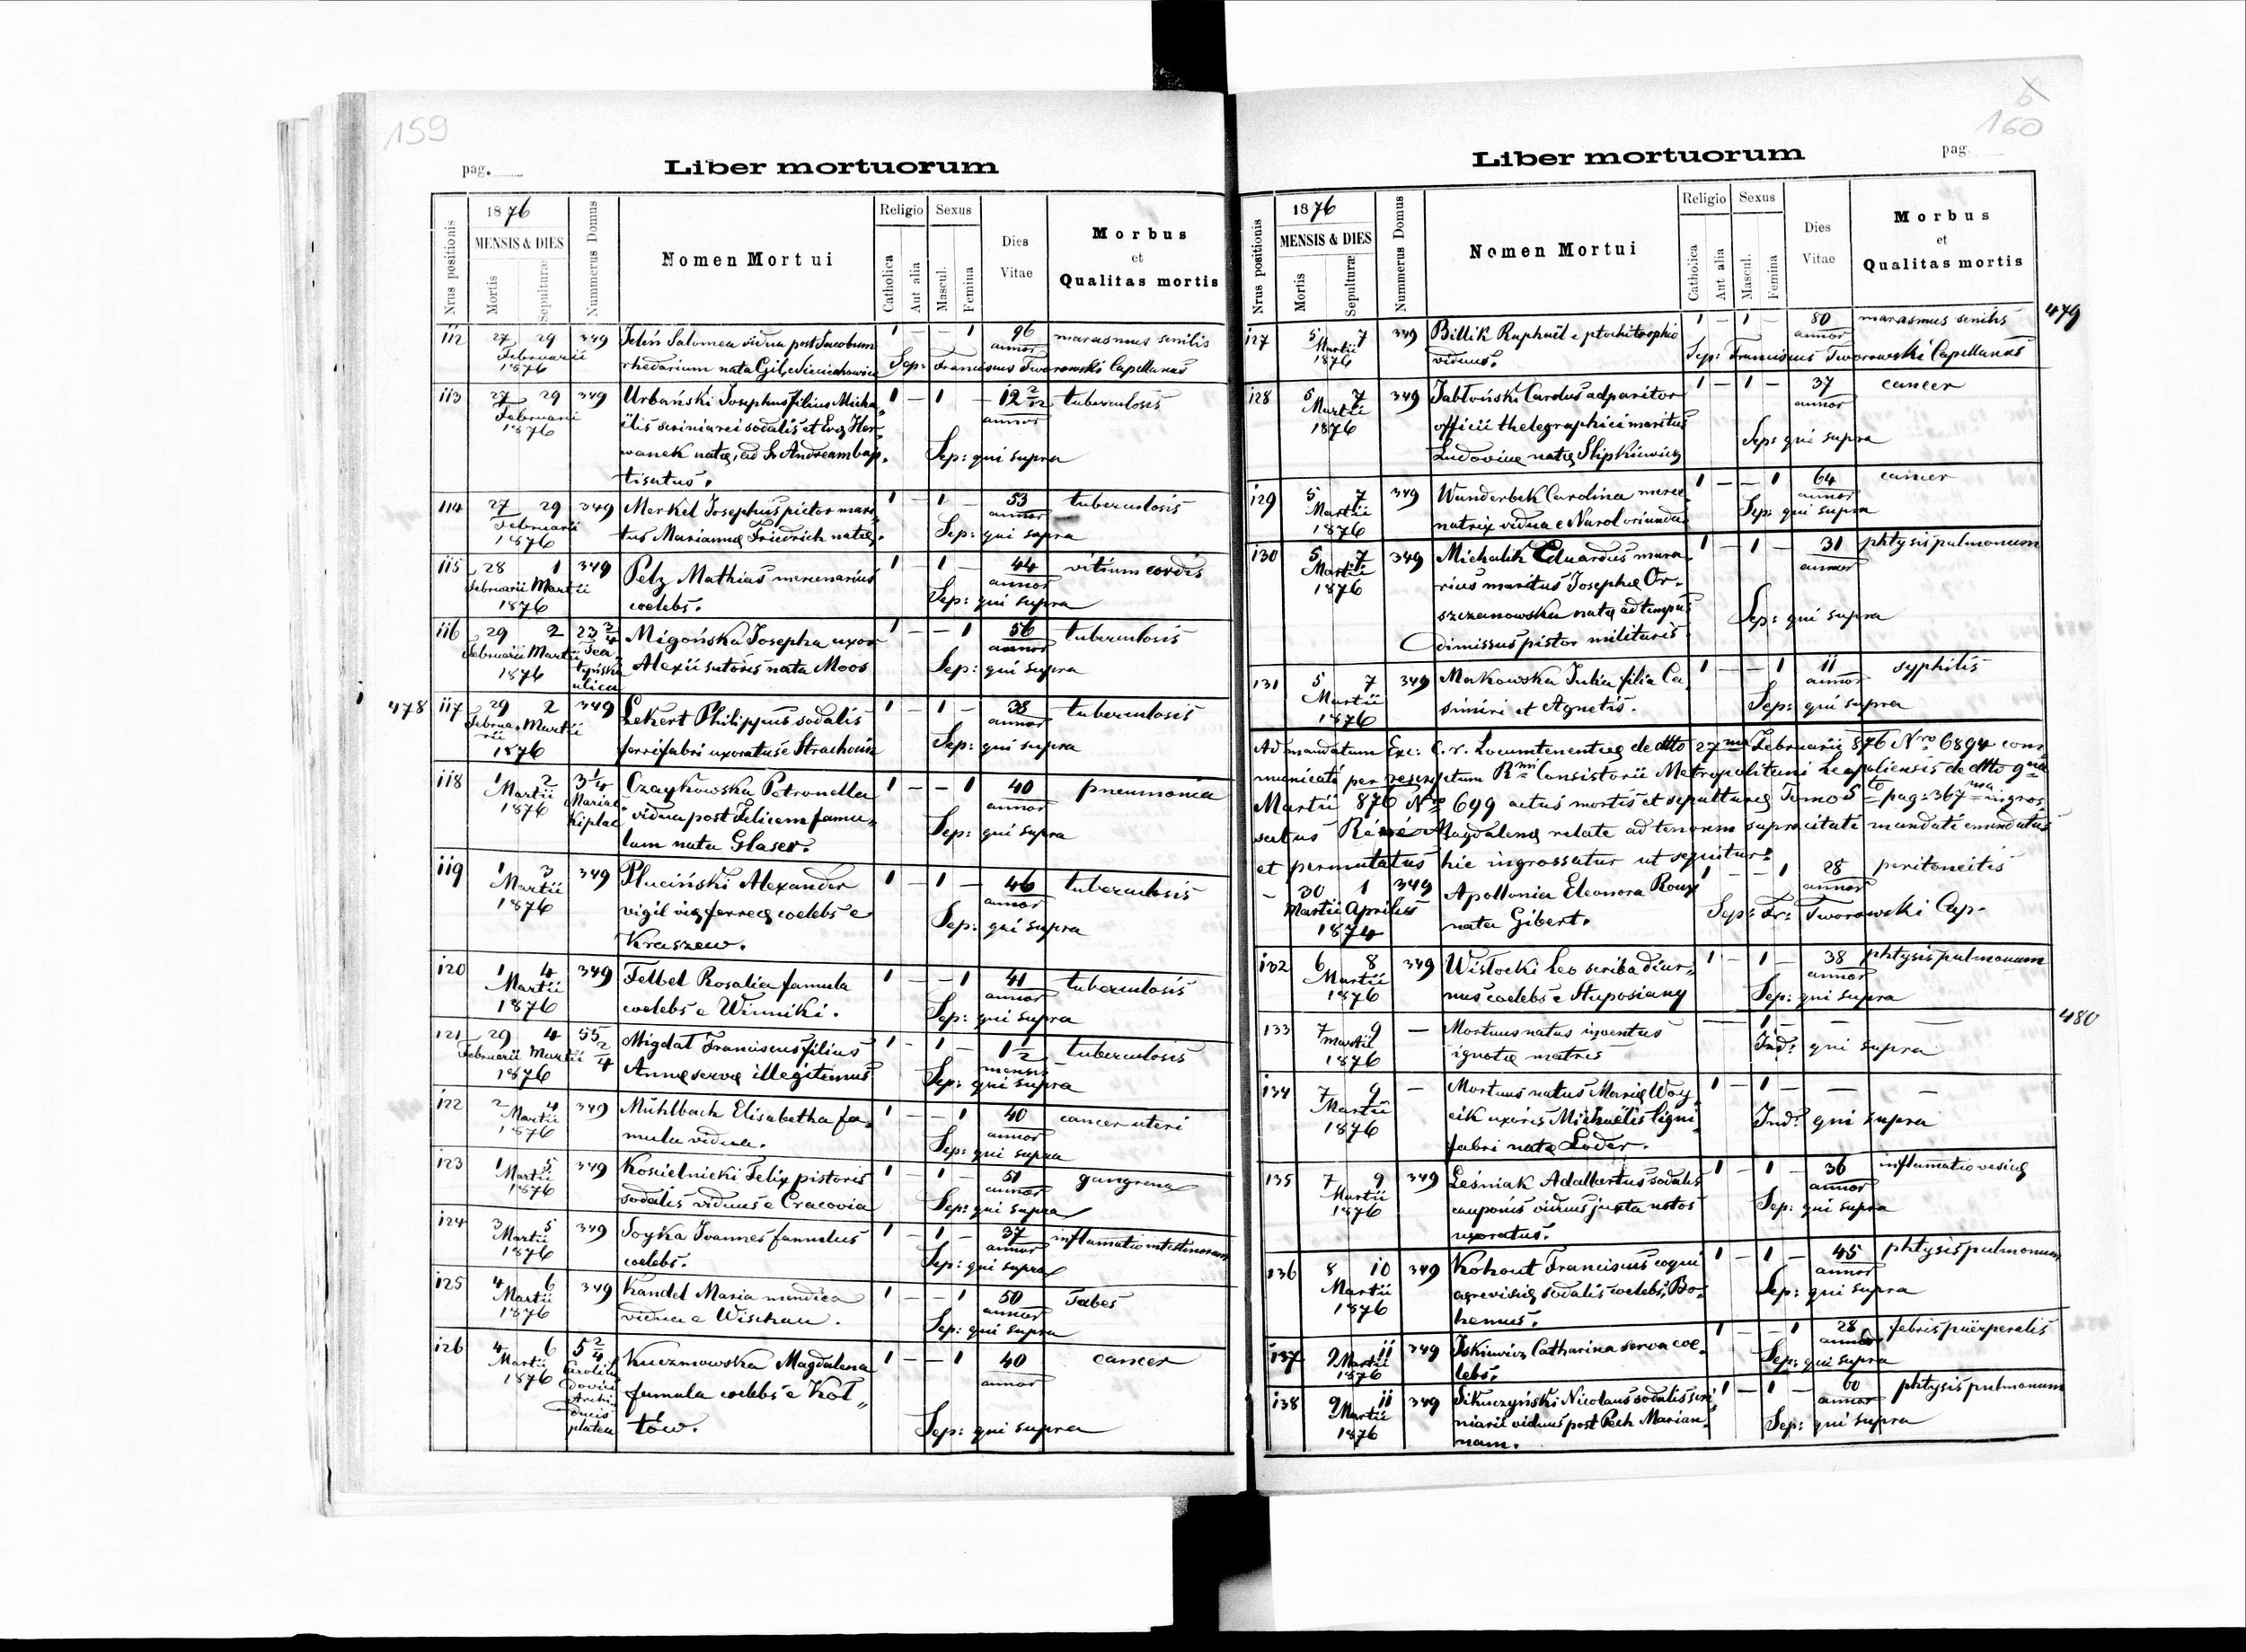 159
pag.
Liber mortuorum
Nrus positionis
1876
MENSIS & DIES
Mortis
Sepulturæ
Nummerus Domus
Nomen Mortui
Religio
Catholica
Aut alia
Sexus
Mascul.
Femina
Dies
Vitae
Morbus
et
Qualitas mortis
112 27 29 349 Salomea vidua post Jacobum 1 – – 1 96 marasmus senilis
Februarii rhedarium nata Gil, annor
1876 Sep: Franciscus Tworowski Capellanus
113 27 29 349 Urbański Josephus filius Micha„ 1 – 1 – 12 2/12 tuberculosis
Februarii ëlis scriniarii sodalis et Evæ Hor„ annor
1876 wanek natæ, ad S. Andream bap„ Sep: qui supra
tisatus.
114 27 29 349 Merkel Josephus pictor mari„ 1 – 1 – 53 tuberculosis
Februarii tus Mariannæ Friedrich natæ. annor
1876 Sep: qui supra
115 28 1 349 Pelz Mathias mercenarius 1 – 1 – 44 vitium cordis
Februarii Martii coelebs. annor
1876 Sep: qui supra
116 29 2 23 2/4 Migońska Josepha uxor 1 – – 1 56 tuberculosis
Februarii Martii Alexii sutoris nata Moos annor
1876 ulica Sep: qui supra
478 117 29 2 349 Lekert Philippus sodalis 1 – 1 – 38 tuberculosis
Februa„ Martii ferrifabri uxoratus e annor
rii
1876 Sep: qui supra
118 1 2 3 1/4 Czaykowska Petronella 1 – – 1 40 pneumonia
Martii Mariac„ vidua post Felicem famu„ annor
1876 ki plac lum nata Glaser. Sep: qui supra
119 1 3 349 Pluciński Alexander 1 – 1 – 46 tuberculosis
Martii vigil viæ ferreæ coelebs e annor
1876 Kraszew. Sep: qui supra
120 1 4 349 Felbel Rosalia famula 1 – – 1 41 tuberculosis
Martii coelebs e Winniki. annor
1876 Sep: qui supra
121 29 4 55 2/4 Migdat Franciscus filius 1 – 1 – 1 1/2 tuberculosis
Februarii Martii Annæ servæ illegitimus mensis
1876 Sep: qui supra
122 2 4 349 Mühlbach Elisabetha fa„ 1 – – 1 40 cancer uteri
Martii mula vidua. annor
1876 Sep: qui supra
123 1 5 349 Koscielnicki Felix pistoris 1 – 1 – 51 gangrena
Martii sodalis viduus e Cracovia annor
1876 Sep: qui supra
124 3 5 349 Soyka Joannes famulus 1 – 1 – 37 inflamatio intestinorum
Martii coelebs. annor
1876 Sep: qui supra
125 4 6 349 Kandel Maria mendica 1 – – 1 50 Tabes
Martii vidua e Wischau. annor
1876 Sep: qui supra
126 4 6 5 2/4 Kuczmowska Magdalena 1 – – 1 40 cancer
Martii Caroli Lu„ famula coelebs e Koł„ annor
1876 dovici tów.
Archi„
ducis
platea Sep: qui supra
6
160
Liber mortuorum
pag.
Nrus positionis
1876
MENSIS & DIES
Mortis
Sepulturæ
Nummerus Domus
Nomen Mortui
Religio
Catholica
Aut alia
Sexus
Mascul.
Femina
Dies
Vitae
Morbus
et
Qualitas mortis
127 5 7 349 Billik Raphaël e ptochitrophio 1 – 1 – 80 marasmus senilis 479
Martii viduus. annor
1876 Sep: Franciscus Tworowski Capellanus
128 5 7 349 Jabłoński Carolus adparitor 1 – 1 – 37 cancer
Martii officii thelegraphici maritus annor
1876 Ludovicæ natæ Slipkiewicz Sep: qui supra
129 5 7 349 Wunderbek Carolina merce„ 1 – – 1 64 cancer
Martii natrix vidua e Narol oriunda annor
1876 Sep: qui supra
130 5 7 349 Michalik Eduardus mura„ 1 – 1 – 31 phtysis pulmonum
Martii rius maritus Josephæ Or„ annor
1876 szczanowska natæ ad tempus Sep: qui supra
dimissus pistor militaris
131 5 7 349 Makowska Julia filia Ca„ 1 – – 1 11 syphilis
Martii simiri et Agnetis. annor
1876 Sep: qui supra
Ad mandatum Exc: C. r. Locumtenentiæ de dtto 27ma Februarii 876 Nro 6894 com„
municati per rescriptum Rmi Consistorii Metropolitani Leopoliensis de dtto 9na
Martii 876 Nro 699 actus mortis et sepulturæ Tomo 5to pag: 367ma ingros„
satus Réné Magdalenæ relate ad tenorem supracitati mandati emendatus
et permutatus hic ingrossatur ut sequitur:
– 30 1 349 Apollonia Eleonora Roux 1 – – 1 28 peritoneitis
Martii Aprilis nata Gibert. annor
1874 Sep: Fr: Tworowski Cap.
132 6 8 349 Wisłocki Leo scriba diur„ 1 – 1 – 38 phtysis pulmonum
Martii nus coelebs e Stuposiany annor
1876 Sep: qui supra
133 7 9 – Mortuus natus inventus – 1 – – – 480
Martii ignotæ matris
1876 Ind: qui supra
134 7 9 – Mortuus natus Mariæ Woy„ 1 – 1 – – –
Martii cik uxoris Michaëlis ligni„
1876 fabri nata Loder. Ind: qui supra
135 7 9 349 Leśniak Adalbertus sodalis 1 – 1 – 36 inflamatio vesicæ
Martii cauponis viduus juxta notos annor
1876 uxoratus. Sep: qui supra
136 8 10 349 Kohout Franciscus coqui 1 – 1 – 45 phtysis pulmonum
Martii sodalis coelebs, Bo„ annor
1876 hemus. Sep: qui supra
137 9 11 349 Iskiewicz Catharina serva coe„ 1 – – 1 28 febris püerperalis
Martii lebs. annor
1876 Sep: qui supra
138 9 11 349 Sikuczyński Nicolaus sodalis scri„ 1 – 1 – 60 phtysis pulmonum
Martii niarii viduus post Pech Marian„ annor
1876 nam. Sep: qui supra